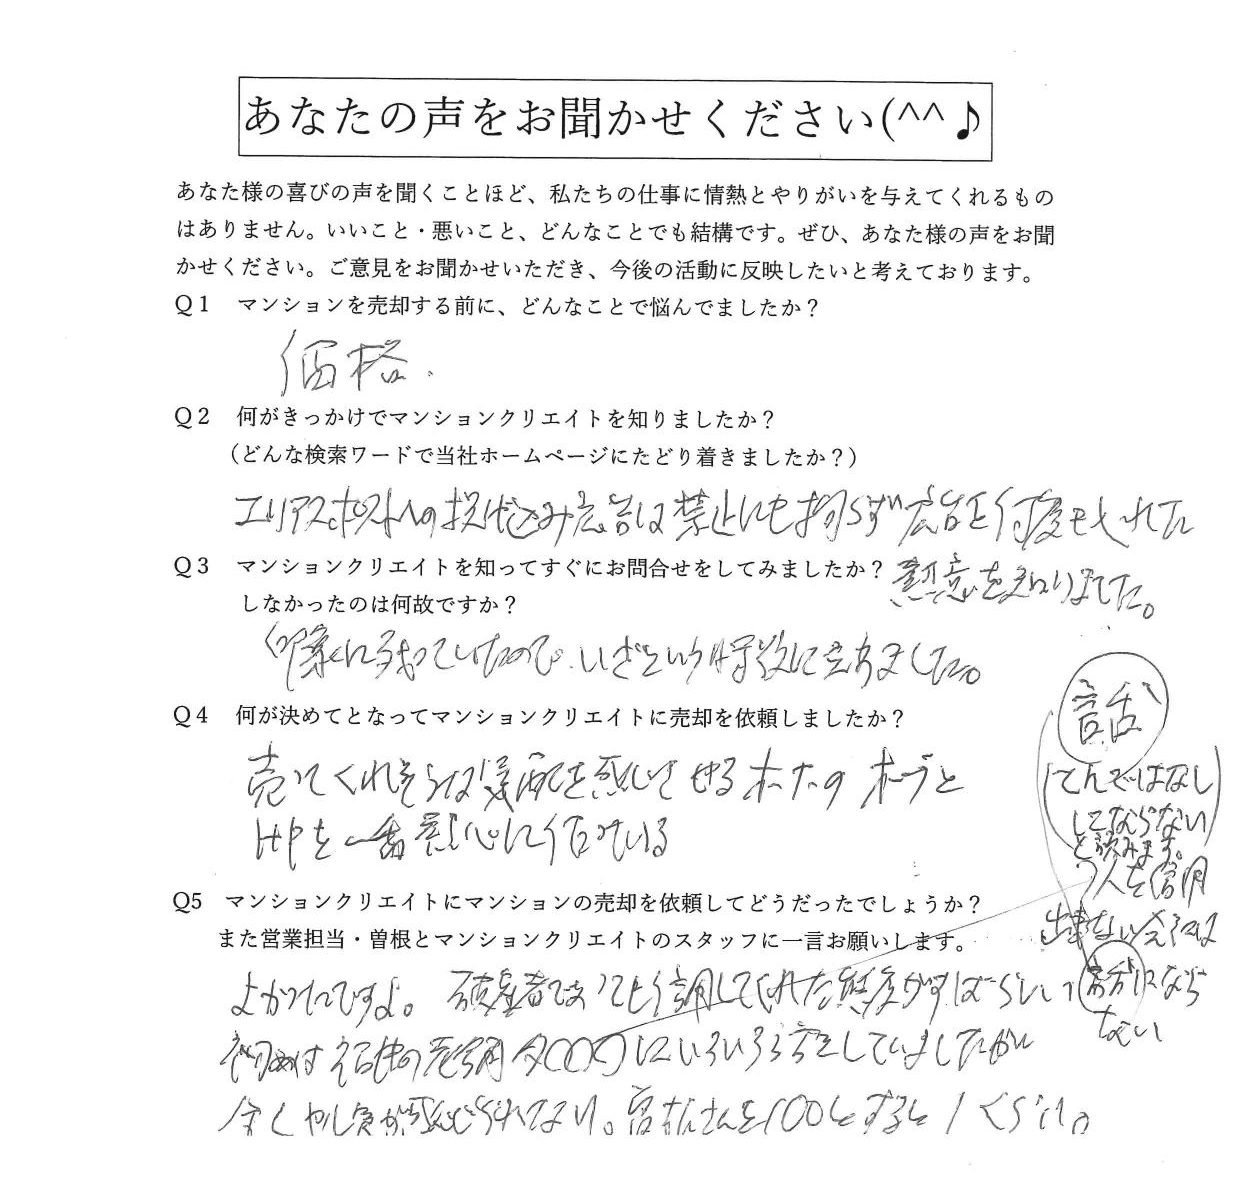 あなたの声をお聞かせください(^^♪
あなた様の喜びの声を聞くことほど、私たちの仕事に情熱とやりがいを与えてくれるもの
はありません。いいこと・悪いこと、どんなことでも結構です。ぜひ、あなた様の声をお聞
かせください。ご意見をお聞かせいただき、今後の活動に反映したいと考えております。
Q1 マンションを売却する前に、どんなことで悩んでましたか？
価格.
Q2 何がきっかけでマンションクリエイトを知りましたか？
（どんな検索ワードで当社ホームページにたどり着きましたか？）
エリアスポストへの投げ込み広告は禁止にも拘らず広告を何度も入れた
熱意を知りました。
Q3 マンションクリエイトを知ってすぐにお問合せをしてみましたか？
しなかったのは何故ですか？
印象に残っていたので、いざという時役に立ちました。
Q4 何が決めてとなってマンションクリエイトに売却を依頼しましたか？
売ってくれそうな気配を感じさせる
HPを一番
Q5 マンションクリエイトにマンションの売却を依頼してどうだったでしょうか？
また営業担当・曽根とマンションクリエイトのスタッフに一言お願いします。
よかったですよ。 破産者であっても信用してくれた態度がすばらしい
にいろいろ
全くやる気が感じられない。曽根さんを100とすると1くらい。
言舌
(てんではなし
してならない
と読みます。)
人を信用
出来ない会社は
話になら
ない